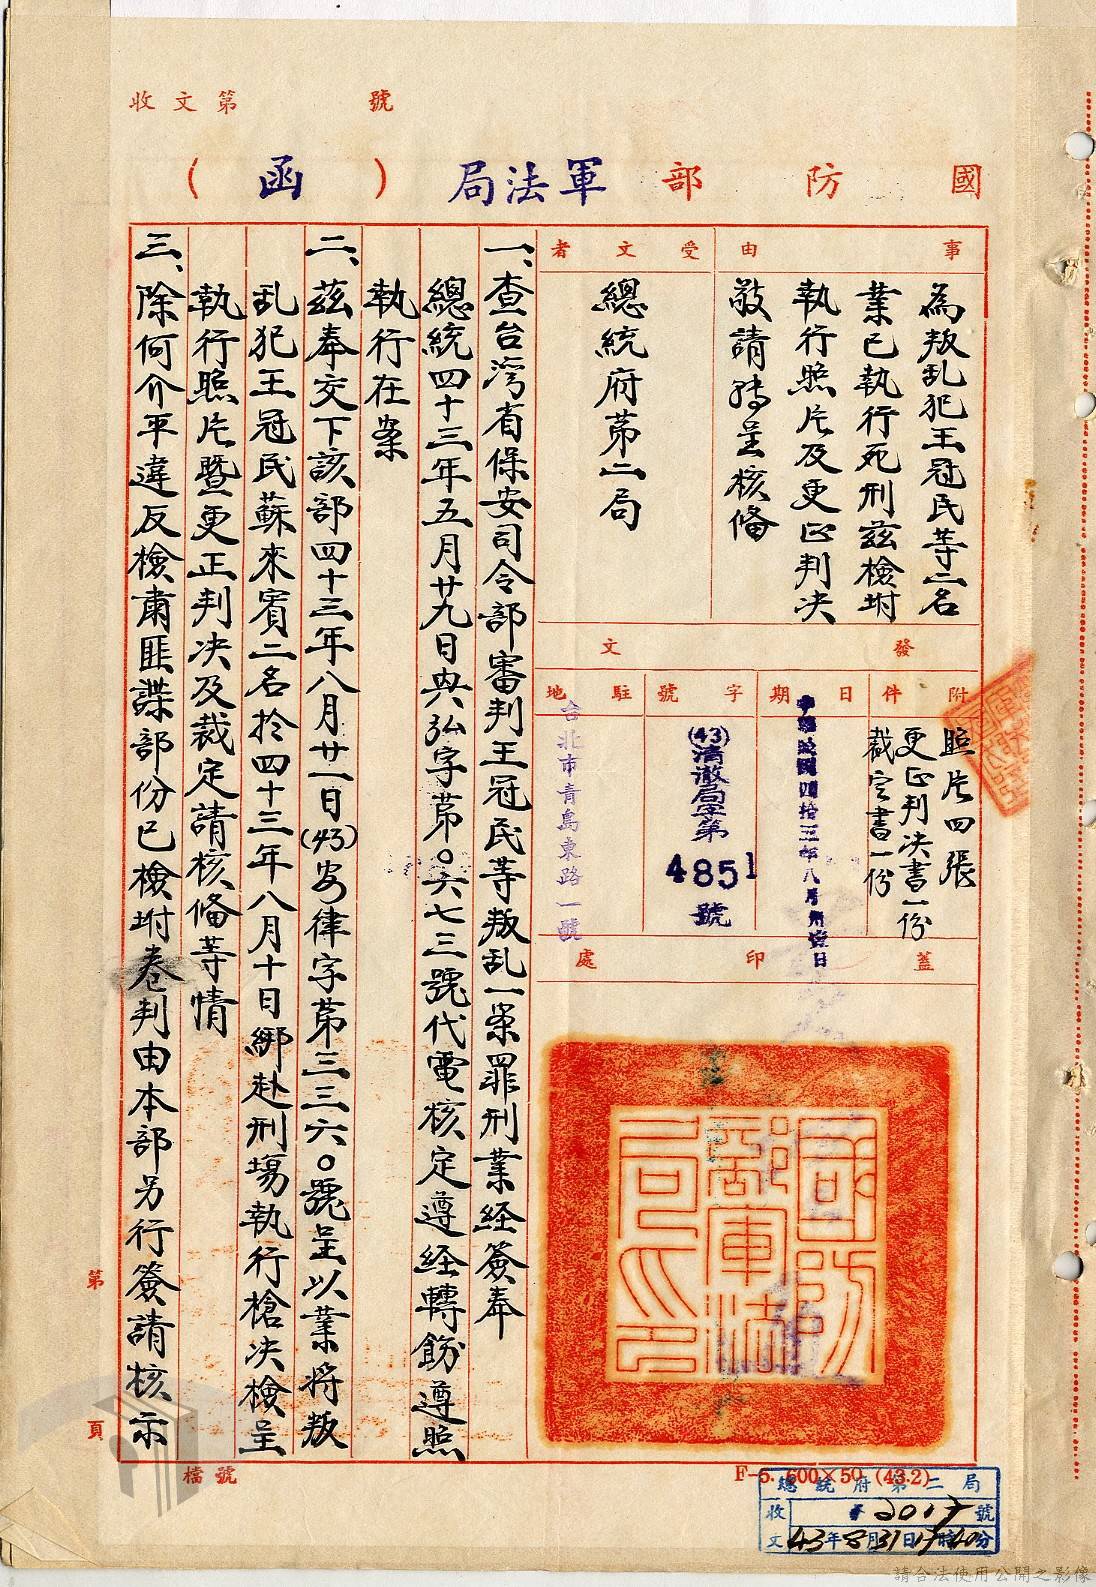 收文第　號
國防部軍法局（函）
事由
為叛乱犯王冠民等二名
業已執行死刑茲檢坿
執行照片及更正判决
敬請轉呈核備
受文者
總統府苐二局
發文
附件
照片四張
更正判决書一份
裁定書一份
日期
中華民國四拾三年八月卅壹日
字號
(43)清澈局字第
4851
號
駐地
台北市青島東路一號
蓋印處
國防部軍法局印
一、查台灣省保安司令部審判王冠民等叛乱一案罪刑業经簽奉
總統四十三年五月廿九日典弘字苐〇六七三號代電核定遵经轉飭遵照
執行在案
二、茲奉交下該部四十三年八月廿一日(43)安律字苐三三六〇號呈以業将叛
乱犯王冠民蘇來賓二名於四十三年八月十日綁赴刑場執行槍决檢呈
執行照片暨更正判决及裁定請核俻等情
三、除何介平違反檢肅匪諜部份已檢坿卷判由本部另行簽請核示
第　頁
檔號
F-5. 600×50 (43.2)
總統府第二局
收　2017號
文43年8月31日　時40分
請合法使用公開之影像